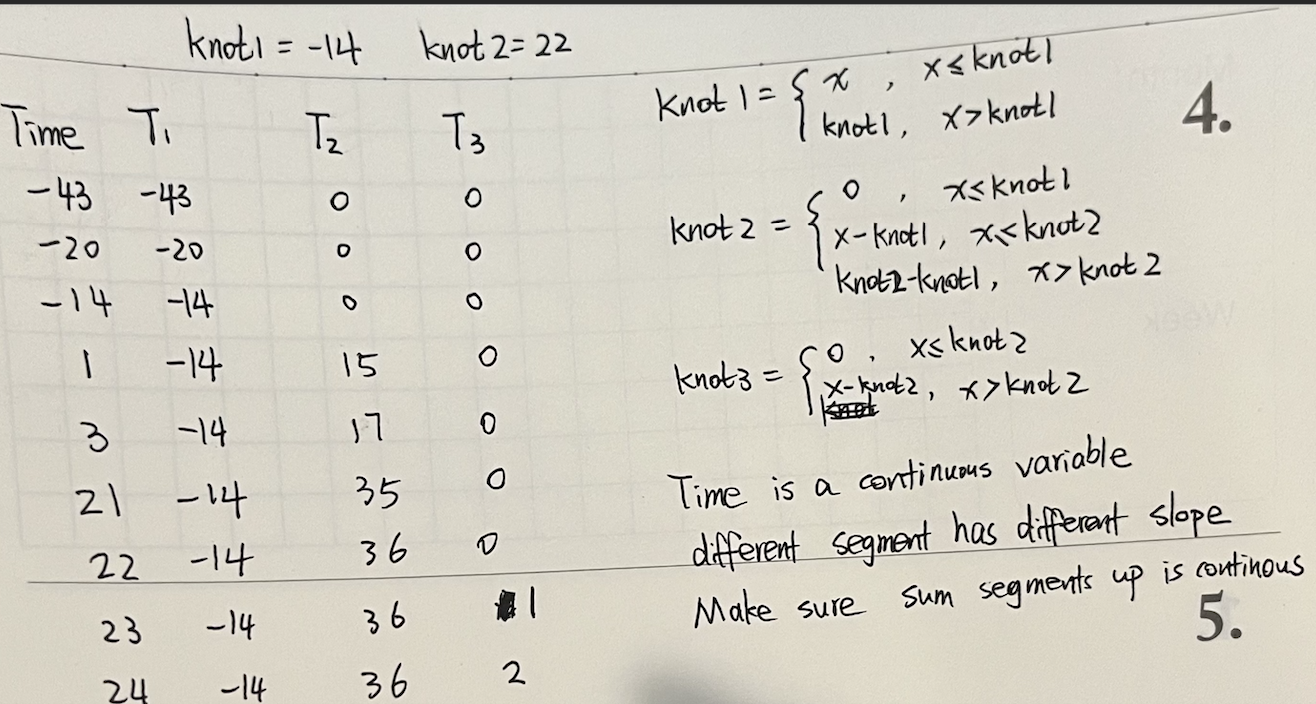 knot1 = -14 knot2=22
Time T1 T2 T3
-43 -43 0 0
-20 -20 0 0
-14 -14 0 0
1 -14 15 0
3 -14 17 0
21 -14 35 0
22 -14 36 0
23 -14 36 1
24 -14 36 2
Knot 1 = { x , x≤knot1
knot1, x>knot1
4.
knot2 = { 0 , x≤knot1
x-knot1, x≤knot2
knot2-knot1, x>knot2
knot3 = { 0 , x≤knot2
x-knot2, x>knot2
Time is a continuous variable
different segment has different slope
Make sure sum segments up is continous
5.